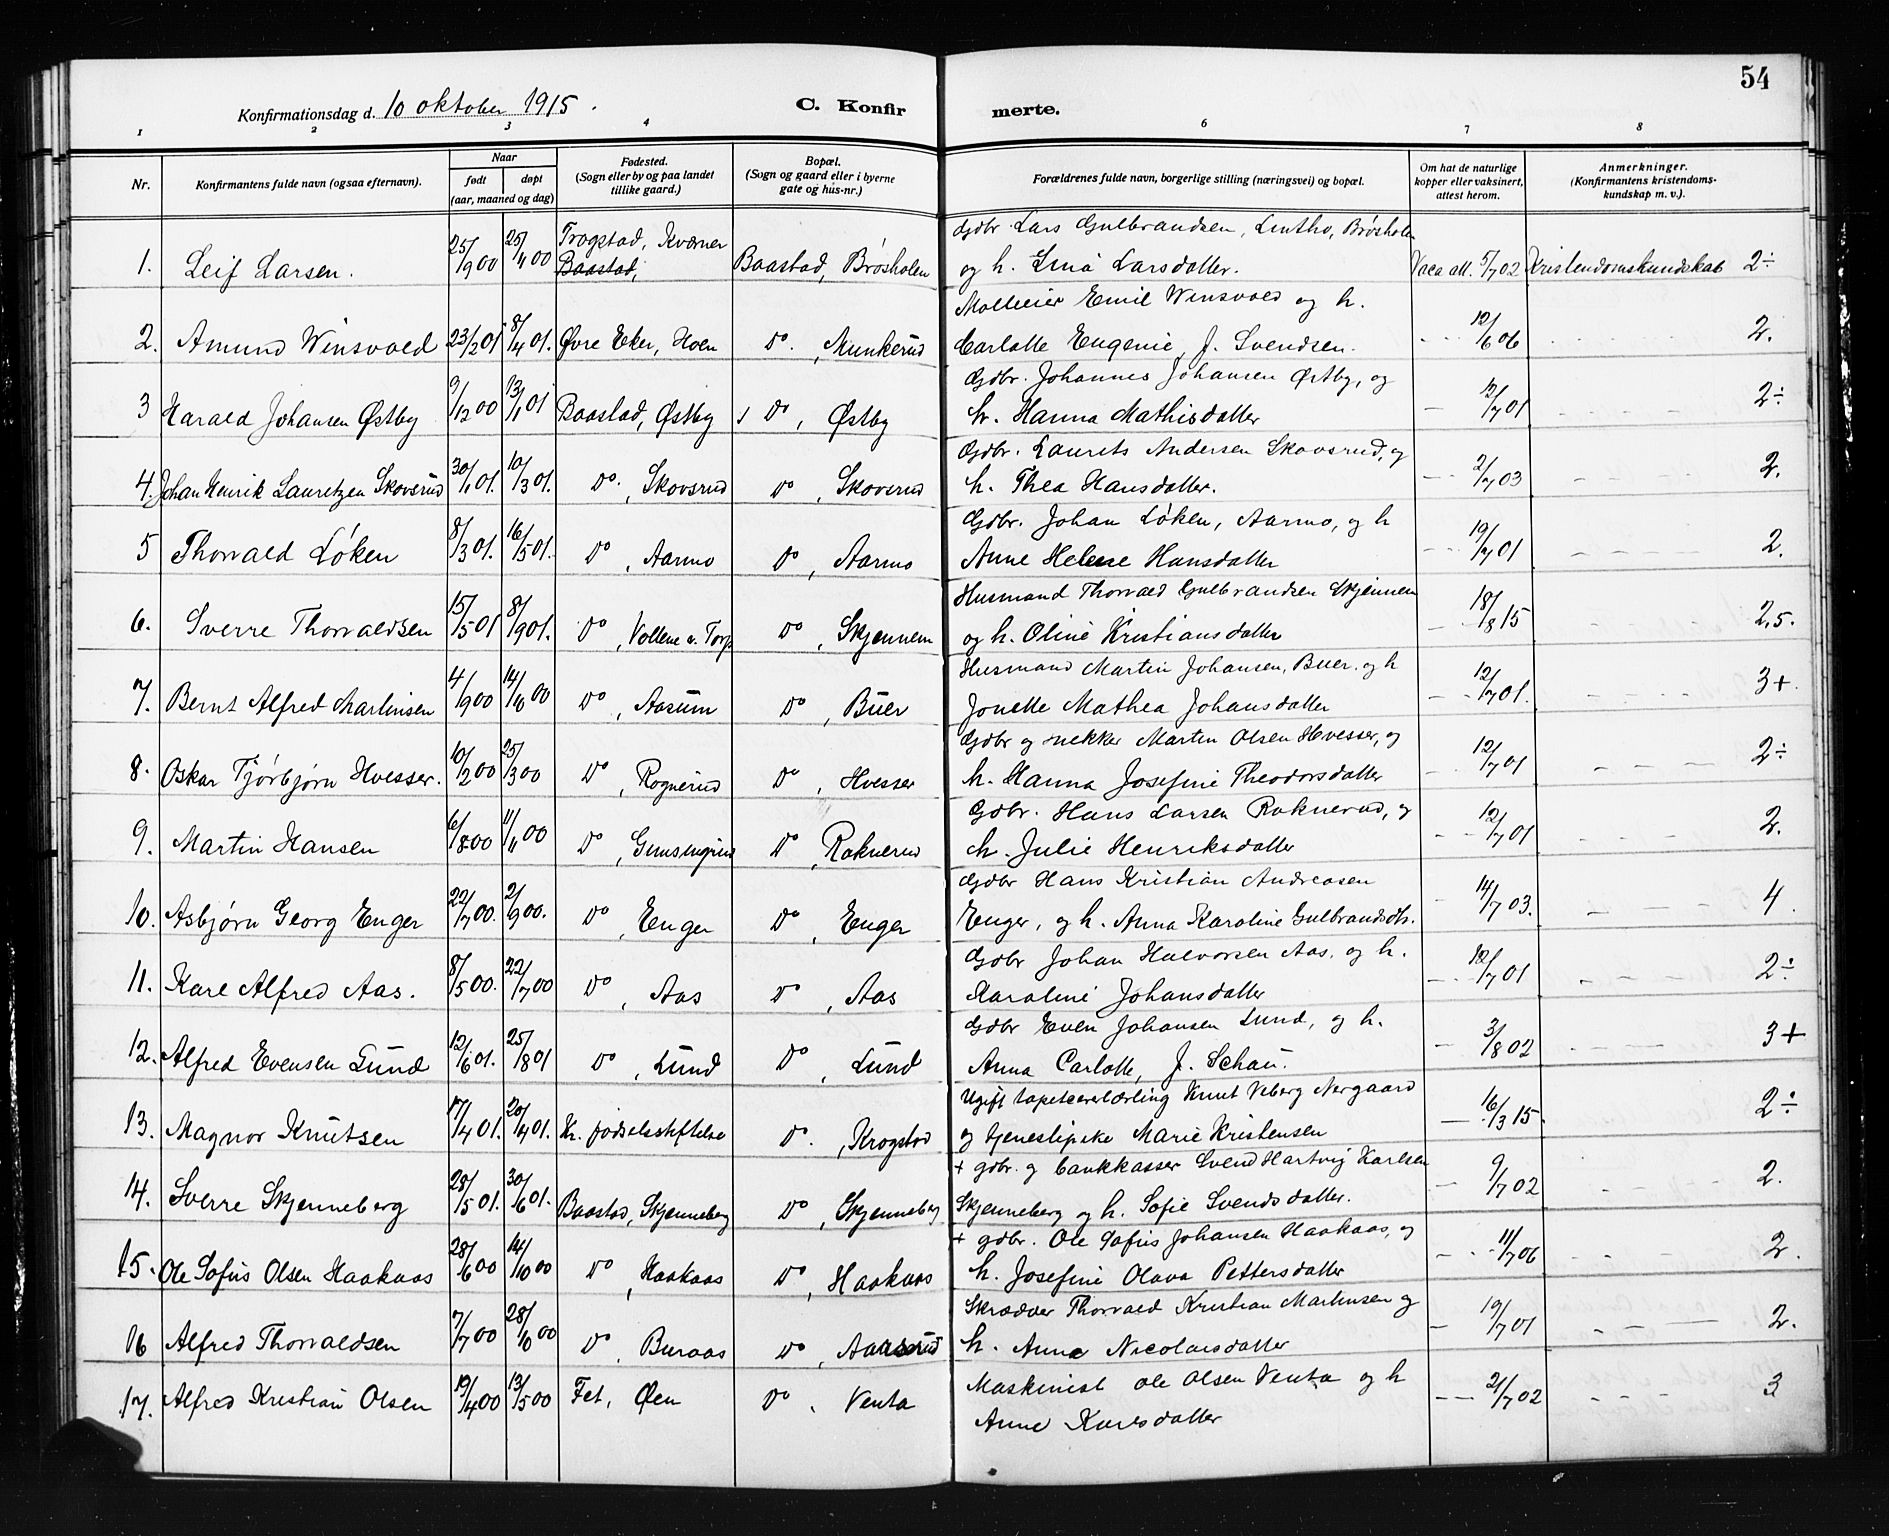 54
Konfirmationsdag d. 10 oktober 1915.
C. Konfirmerte.
1 2 3 4 6 7 8
Nr.
Konfirmantens fulde navn (ogsaa efternavn).
Naar
født
døpt
(aar, maaned og dag)
Fødested.
(Sogn eller by og paa landet
tillike gaard.)
Bopæl.
(Sogn og gaard eller i byerne
gate og hus-nr.)
Forældrenes fulde navn, borgerlige stilling (næringsvei) og bopæl.
Om hat de naturlige
kopper eller vaksinert,
attest herom.
Anmerkninger.
(Konfirmantens kristendoms-
kundskap m. v.).
Trøgstad, Kværner Gdbr. Lars Gulbrandsen, Brøsholen
1. Leif Larsen. 25/9 00 25/4 00 Baastad, Baastad, Brøsholen og h. Lina Larsdatter. Vaca att. 5/7 02 Kristendomskundskab 2÷
Emil Winsvold og h.
2. Amund Winsvold 23/2 01 8/4 01. Øvre Eker, Hoen Do. , Munkerud Carlotte Eugenie, f. Svendsen. 12/6 06 2.
Gdbr. Johannes Johansen Østby, og
3 Harald Johansen Østby 9/12 00 13/1 01 Baastad, Østby Do , Østby h. Hanna Mathisdatter 12/7 01 2÷
Gdbr. Laurits Andersen Skovsrud, og
4. Johan Henrik Lauretzen Skovsrud 30/1 01. 10/3 01. Do. , Skovsrud Do , Skovsrud h. Thea Hansdatter. 2/7 03 2.
Gdbr. Johan Løken, Aarmo, og h
5 Thorvald Løken 8/3 01. 16/5 01. Do , Aarmo Do , Aarmo Anne Helene Hansdatter 19/7 01 2.
Husmand Thorvald Gulbrandsen Skjennem
6. Sverre Thorvaldsen 15/5 01 8/9 01. Do , Vollene u. Torp Do , Skjennem og h. Oline Kristiansdatter 18/8 15 2,5.
Husmand Martin Johansen, Buer. og h
7. Bernt Alfred Martinsen 4/9 00 14/6 00 Do , Aasum Do , Buer Jonette Mathea Johansdatter 12/7 01. 3+
Gdbr og snekker Martin Olsen Hvesser, og
8. Oskar Tjørbjørn Hvesser. 10/2 00 25/3 00 Do , Rognerud Do , Hvesser h. Hanna Josefine Theodorsdatter 12/7 01 2÷
Gdbr. Hans Larsen Roknerud, og
9. Martin Hansen 6/8 00 11/11 00 Do , Gunsengrud Do , Roknerud h. Julie Henriksdatter 12/7 01 2.
Gdbr Hans Kristian Andreasen
10. Asbjørn Georg Enger 22/7 00. 2/9 00. Do , Enger Do , Enger Enger, og h. Anna Karoline Gulbrandsdtr. 14/7 03. 4.
Gdbr Johan Halvorsen Aas, og h.
11. Kare Alfred Aas. 8/5 00. 22/7 00 Do , Aas Do , Aas Karoline Johansdatter 12/7 01 2÷
Gdbr Even Johansen Lund, og h.
12. Alfred Evensen Lund 12/6 01. 25/8 01 Do , Lund Do , Lund Anna Carlotte, f. Schau. 3/8 02 3+
Ugift tapetsererlærling Knut Viberg Nergaard
13. Magnor Knutsen 17/4 01. 20/4 01. Kr. fødselsstiftelse Do. , Krogstad og tjenestepike Marie Kristensen 16/3 15. 2÷
+ gdbr. og bankkasser Svend Hartvig Karlsen
14. Sverre Skjenneberg 28/5 01. 30/6 01. Baastad, Skjenneberg Do , Skjenneberg Skjenneberg og h. Sofie Svendsdatter. 9/7 02 2.
+ gdbr. Ole Sofus Johansen Haakaas, og
15. Ole Sofus Olsen Haakaas 28/6 00 14/10 00 Do , Haakaas Do , Haakaas h. Josefine Olava Pettersdatter 11/7 06 2.
Skrædder Thorvald Kristian Martinsen og
16 Alfred Thorvaldsen 7/7 00 28/10 00 Do , Buraas Do , Aaserud h. Anna Nicolaisdatter 19/7 01 2.
Maskinist Ole Olsen Venta og h
17. Alfred Kristian Olsen 19/4 00 13/5 00 Fet, Øen Do , Venta Anne Karlsdatter 21/7 02 3